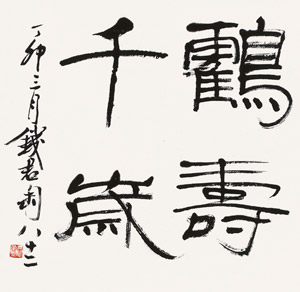 鶴壽
千歲
丁卯三月錢君匋八十二